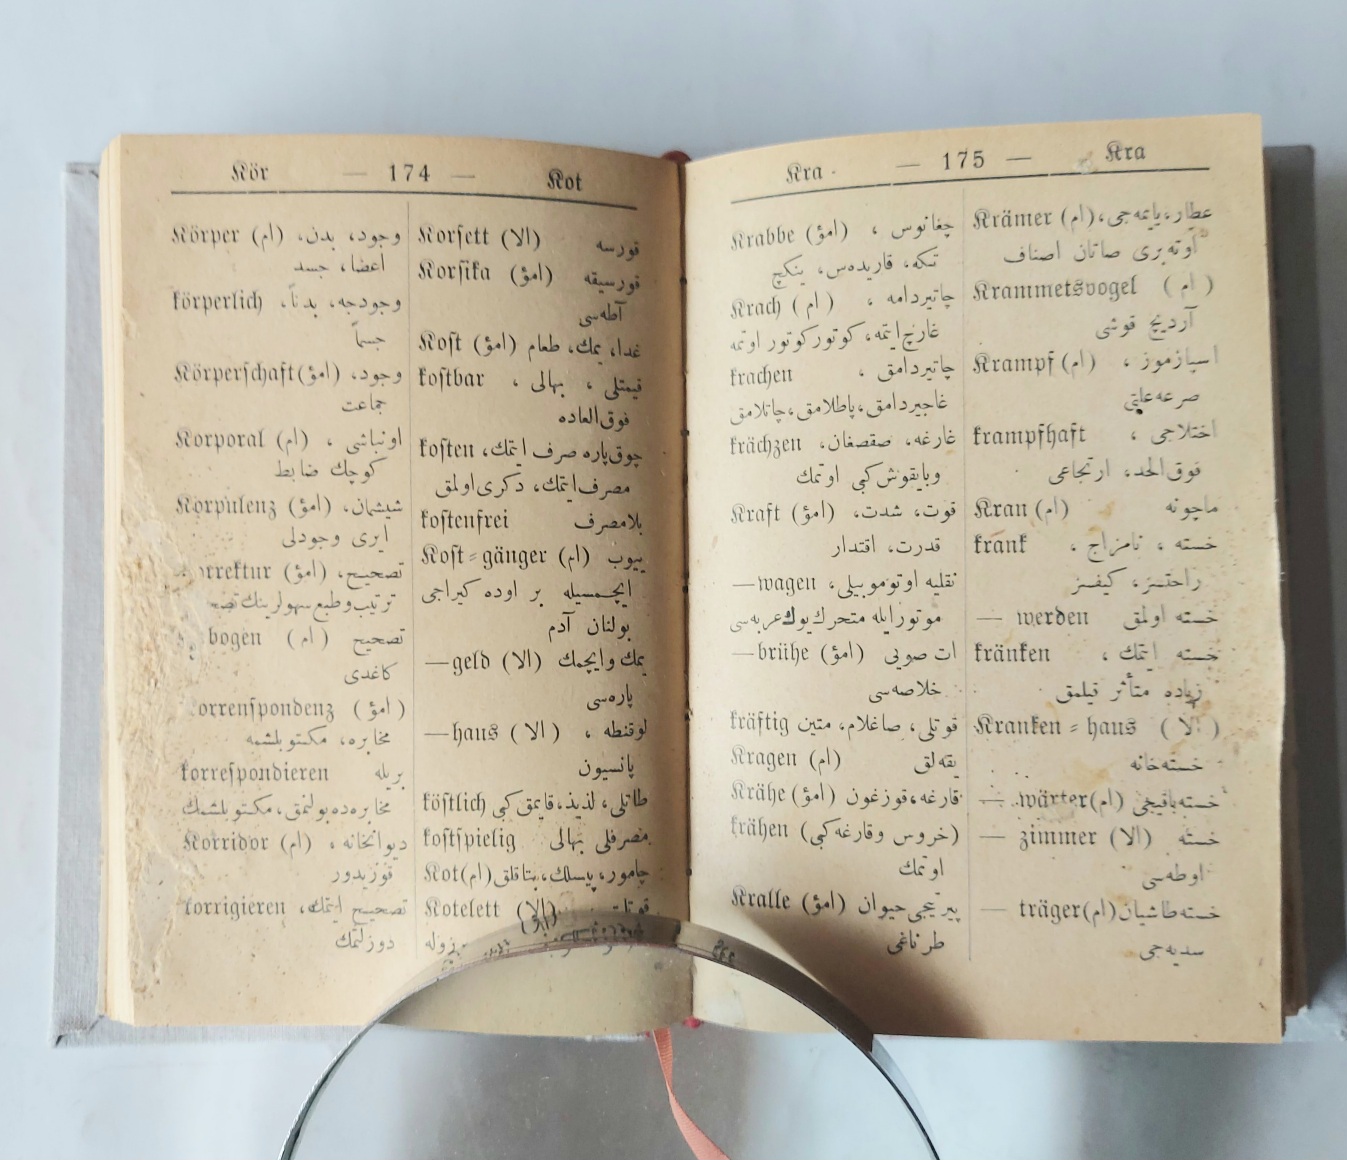 Kör — 174 — Kot
Körper (ام) وجود، بدن،
اعضا، جسد
körperlich وجودجه، بدناً،
جسماً
Körperschaft (امؤ) وجود،
جماعت
Korporal (ام) اونباشی ،
كوچك ضابط
Korpulenz (امؤ) شیشمان،
ایری وجودلی
orrektur (امؤ) تصحیح،
ترتیب وطبع سهولرینك
bogen (ام) تصحیح
كاغدی
orrenspondenz (امؤ)
مخابره، مكتوبلشمه
korrespondieren بریله
مخابره ده بولنمق، مكتوبلشمك
Korridor (ام) دیوانخانه ،
قوریدور
korrigieren تصحیح ایتمك،
دوزلتمك
Korsett (الا) قورسه
Korsika (امؤ) قورسیقه
آطه سی
Kost (امؤ) غدا، یمك، طعام
kostbar قیمتلی ، بهالی ،
فوق العاده
kosten چوق پاره صرف ایتمك،
مصرف ایتمك، دكری اولمق
kostenfrei بلامصرف
Kost-gänger (ام) ییوب
ایچمسیله بر اوده كیراجی
بولنان آدم
—geld (الا) یمك وایچمك
پاره سی
—haus (الا) لوقنطه ،
پانسیون
köstlich طاتلی، لذیذ، قایمق كبی
kostspielig مصرفلی بهالی
Kot (ام) چامور، پیسلك، بتاقلق
Kotelett (الا)
Kra — 175 — Kra
Krabbe (امؤ) چغانوس ،
تكه، قاریده س، ینكچ
Krach (ام) چاتیردامه ،
غارچ ایتمه، كوتور كوتور اوتمه
krachen چاتیردامق ،
غاجیردامق، پاطلامق، چاتلامق
krächzen غارغه، صقصغان،
وبایقوش كبی اوتمك
Kraft (امؤ) قوت، شدت،
قدرت، اقتدار
—wagen نقلیه اوتوموبیلی،
موتورایله متحرك یوك عربه سی
—brühe (امؤ) ات صویی
خلاصه سی
kräftig قوتلی، صاغلام، متین
Kragen (ام) یقه لق
Krähe (امؤ) قارغه، قوزغون
krähen (خروس وقارغه كبی)
اوتمك
Kralle (امؤ) ییرتیجی حیوان
طرناغی
Krämer (ام) عطار، پایمه جی،
أوته بری صاتان اصناف
Krammetsvogel (ام)
آردیچ قوشی
Krampf (ام) اسپازموز ،
صرعه علتی
krampfhaft اختلاجی ،
فوق الحد، ارتجاعی
Kran (ام) ماچونه
krank خسته ، نامزاج ،
راحتسز، كیفسز
— werden خسته اولمق
kränken خسته ایتمك ،
زیاده متأثر قیلمق
Kranken-haus (الا)
خسته خانه
— wärter (ام) خسته باقیجی
— zimmer (الا) خسته
اوطه سی
— träger (ام) خسته طاشیان
سدیه جی